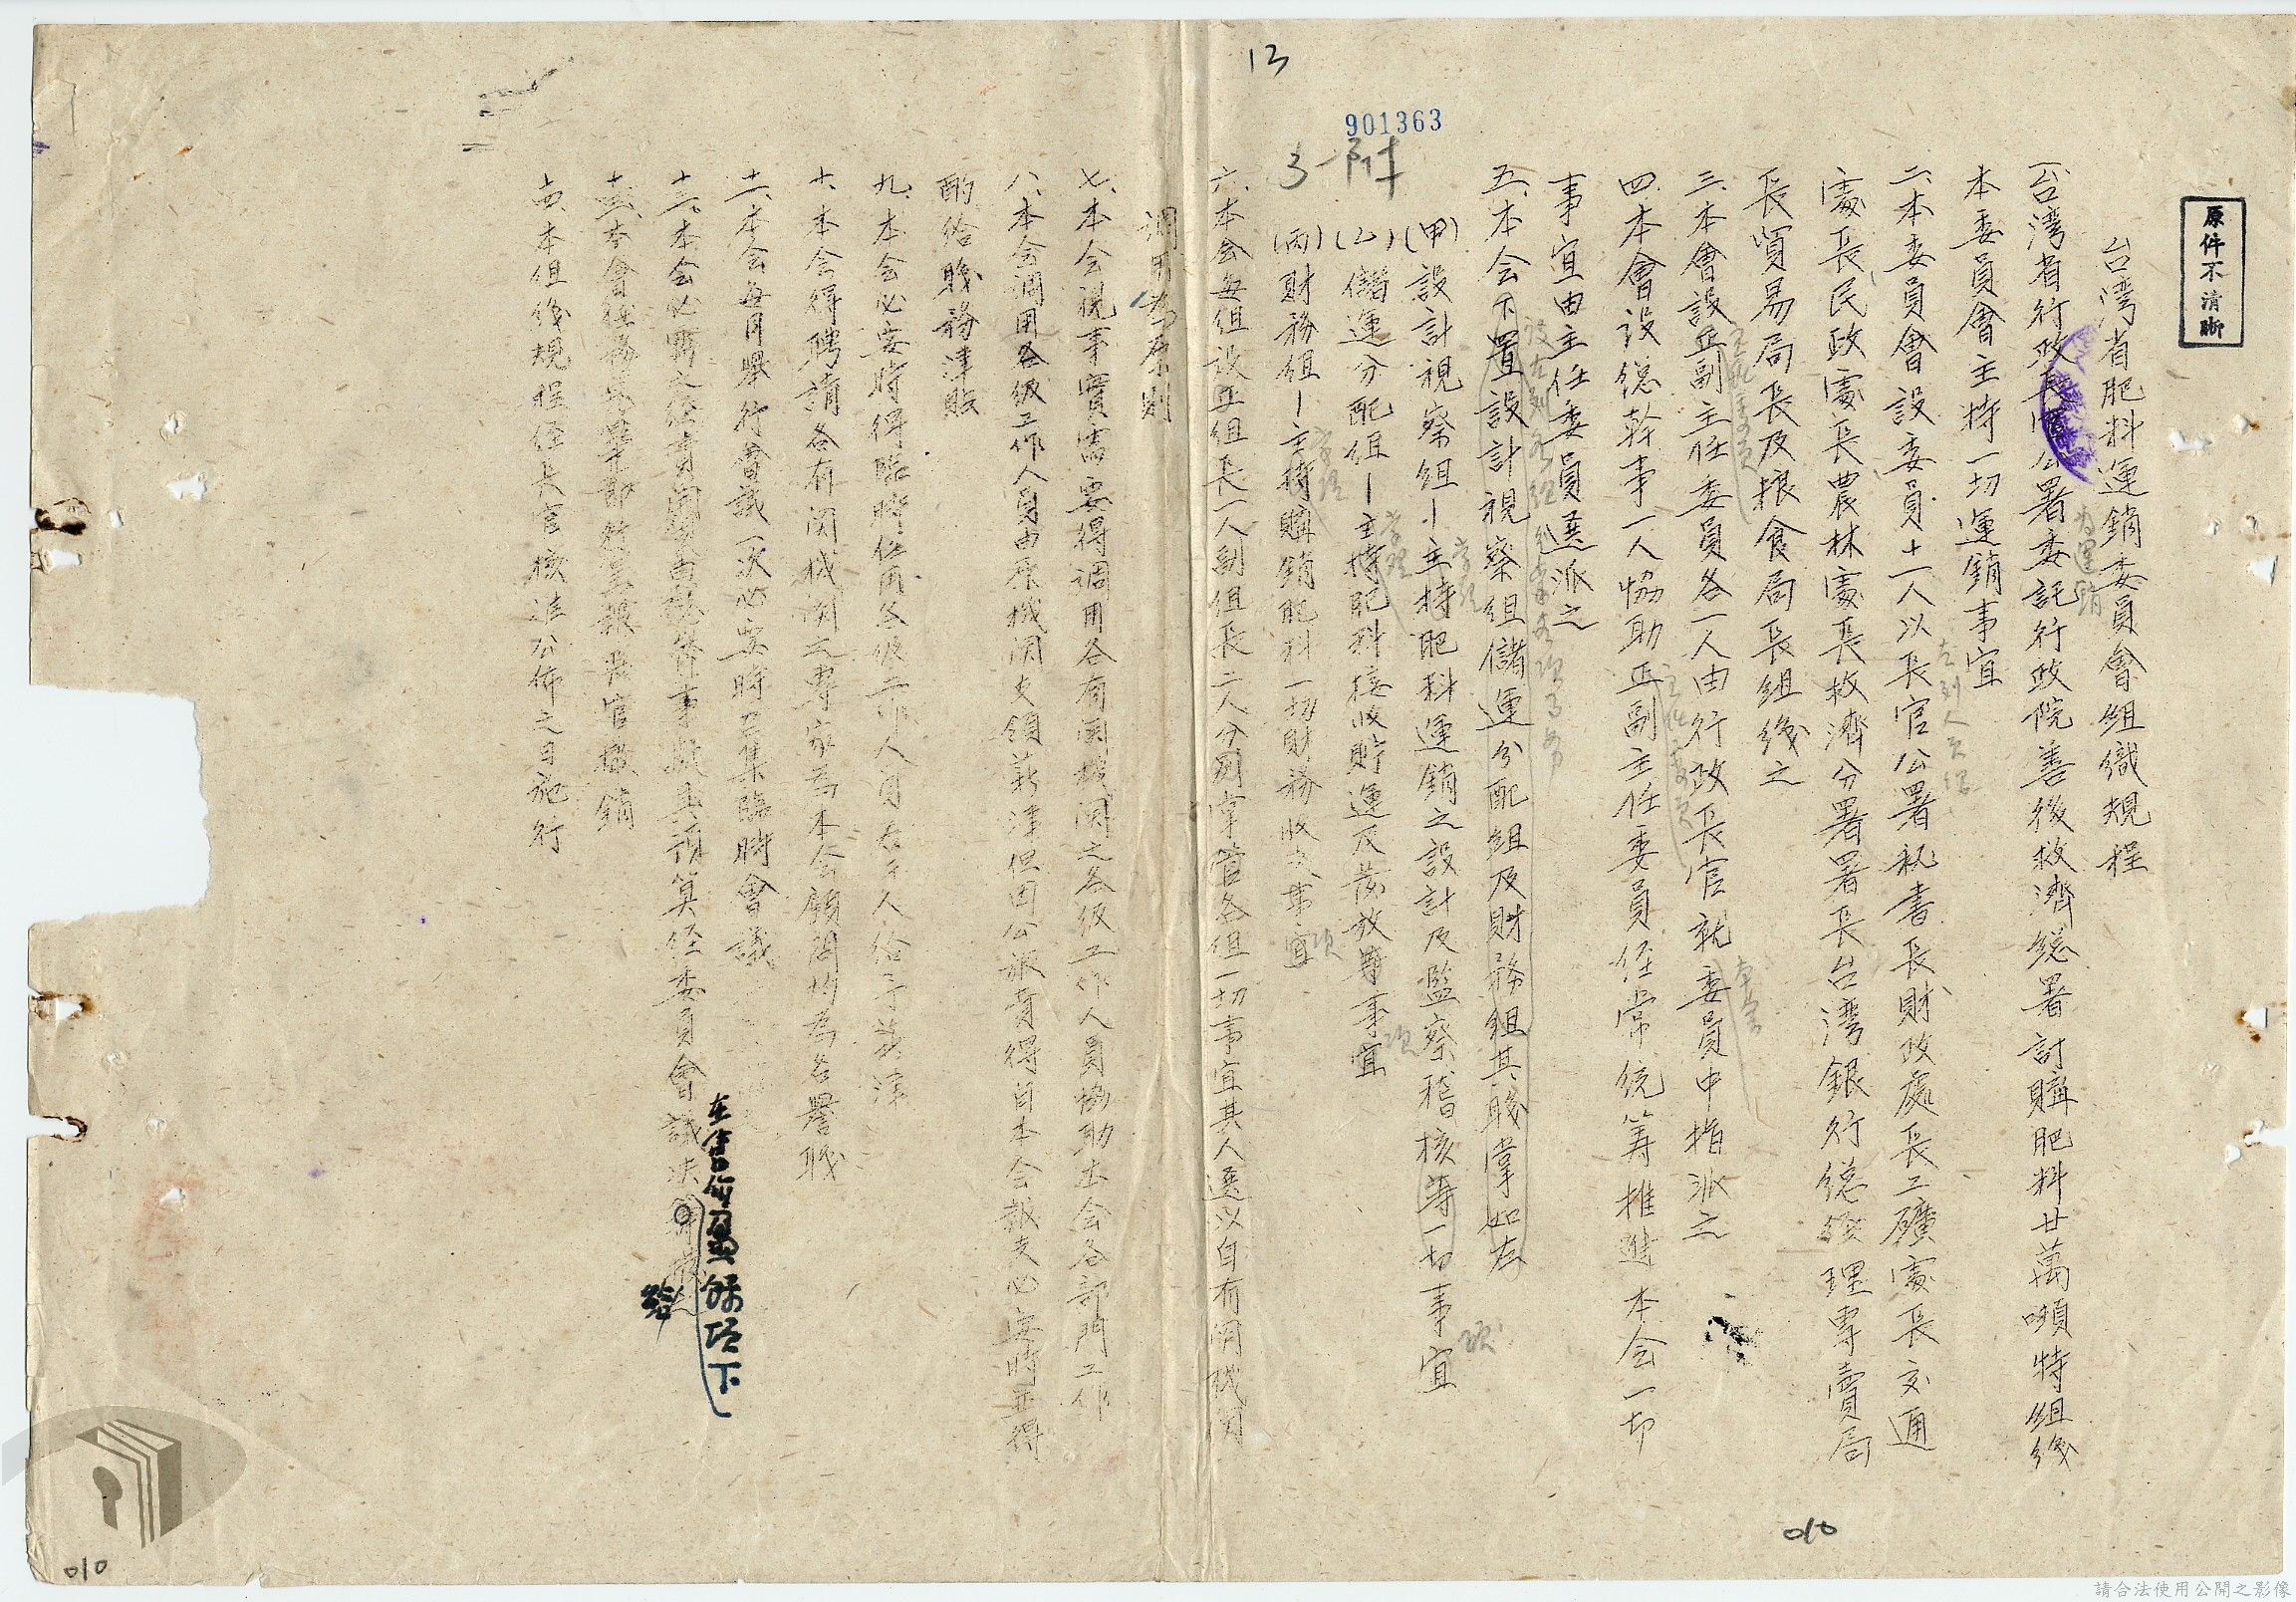 13
901363
3-附
原件不清晰
台湾省肥料運銷委員會組織規程
一、台湾省行政長官公署委託行政院善後救濟総署訂購肥料廿萬噸特組織
為運銷
本委員會主持一切運銷事宜
二、本委員會設委員十一人以長官公署秘書長財政處長工礦處長交通
左列人員組
處長民政處處長農林處處長救濟分署署長台湾銀行総経理專賣局
長貿易局長及粮食局長組織之
三、本會設正副主任委員各一人由行政長官就委員中指派之
四、本會設総幹事一人協助正副主任委員経常統筹推進本会一切
主任委員
事宜由主任委員遴派之
五、本会下置設計視察組儲運分配組及財務組其職掌如左
設左列各組
(甲)設計視察組－主持肥料運銷之設計及監察稽核等一切事宜
掌理
項
(乙)儲運分配組－主持肥料接收貯運及發放等事宜
掌理
項
(丙)財務組－主持購銷肥料一切財務收支事宜
掌理
項
六、本会每組設正組長一人副組長二人分别掌管各组一切事宜其人選以自有関机関
調用為原則
七、本会視事實需要得調用各有関機関之各級工作人員協助本会各部門工作
八、本会調用各級工作人員由原機関支領薪津但因公旅費得自本会報支必要時並得
酌給職務津貼
九、本会必要時得臨時任用各級工作人員若干人給予薪津
十、本会得聘請各有関機関之專家為本会顧問均為名譽職
十一、本会每月舉行會議一次必要時召集臨時會議
十二、本会必需之経費開支由総幹事擬具預算経委員會議決
在售價盈餘項下
十三、本會任務完畢即行呈報長官撤銷
十四、本组織規程経長官核准公佈之日施行
010
010
請合法使用公開之影像